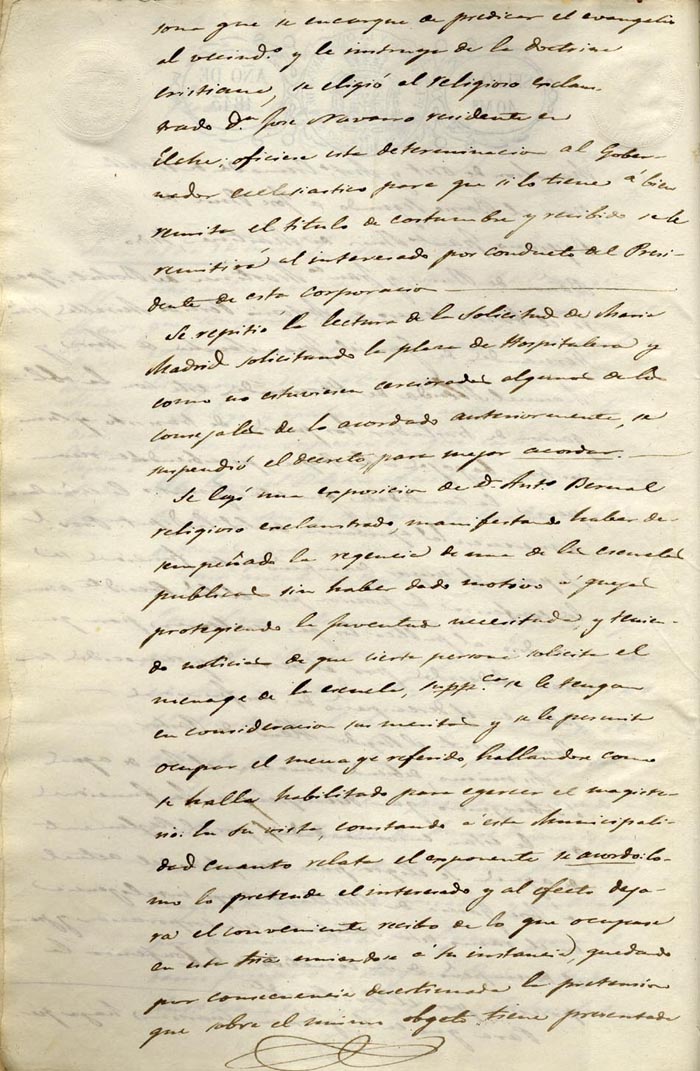 sona que se encargue de predicar el evangelio
al vecind.o y le instruya de la doctrina
cristiana, se eligió al religioso exclaus-
trado D.n José Navarro residente en
Elche; oficiese esta determinacion al Gober-
nador eclesiastico para que si lo tiene á bien
remita el titulo de costumbre y recibido se le
remitirá al interesado por conducto del Presi-
dente de esta corporacion
Se repitió la lectura de la solicitud de Maria
Madrid solicitando la plaza de Hospitalera y
como no estuviesen cerciorados algunos de los
concejales de lo acordado anteriormente, se
suspendió el decreto para mejor acordar.
Se leyó una exposicion de D. Ant.o Bernal
religioso exclaustrado, manifestando haber de-
sempeñado la regencia de una de las escuelas
publicas sin haber dado motivo á quejas
protegiendo la juventud necesitada y tenien-
do noticias de que cierta persona solicita el
menage de la escuela, supp.ca se le tengan
en consideracion sus meritos y se le permita
ocupar el menage referido, hallandose como
se halla habilitado para egercer el magiste-
rio: En su vista, constando á esta Municipali-
dad cuanto relata el exponente se acordó: co-
mo lo pretende el interesado y al efecto deja-
rá el conveniente recibo de lo que ocupase
en este uniendose á su instancia, quedando
por consecuencia desestimada la pretension
que sobre el mismo obgeto tiene presentada